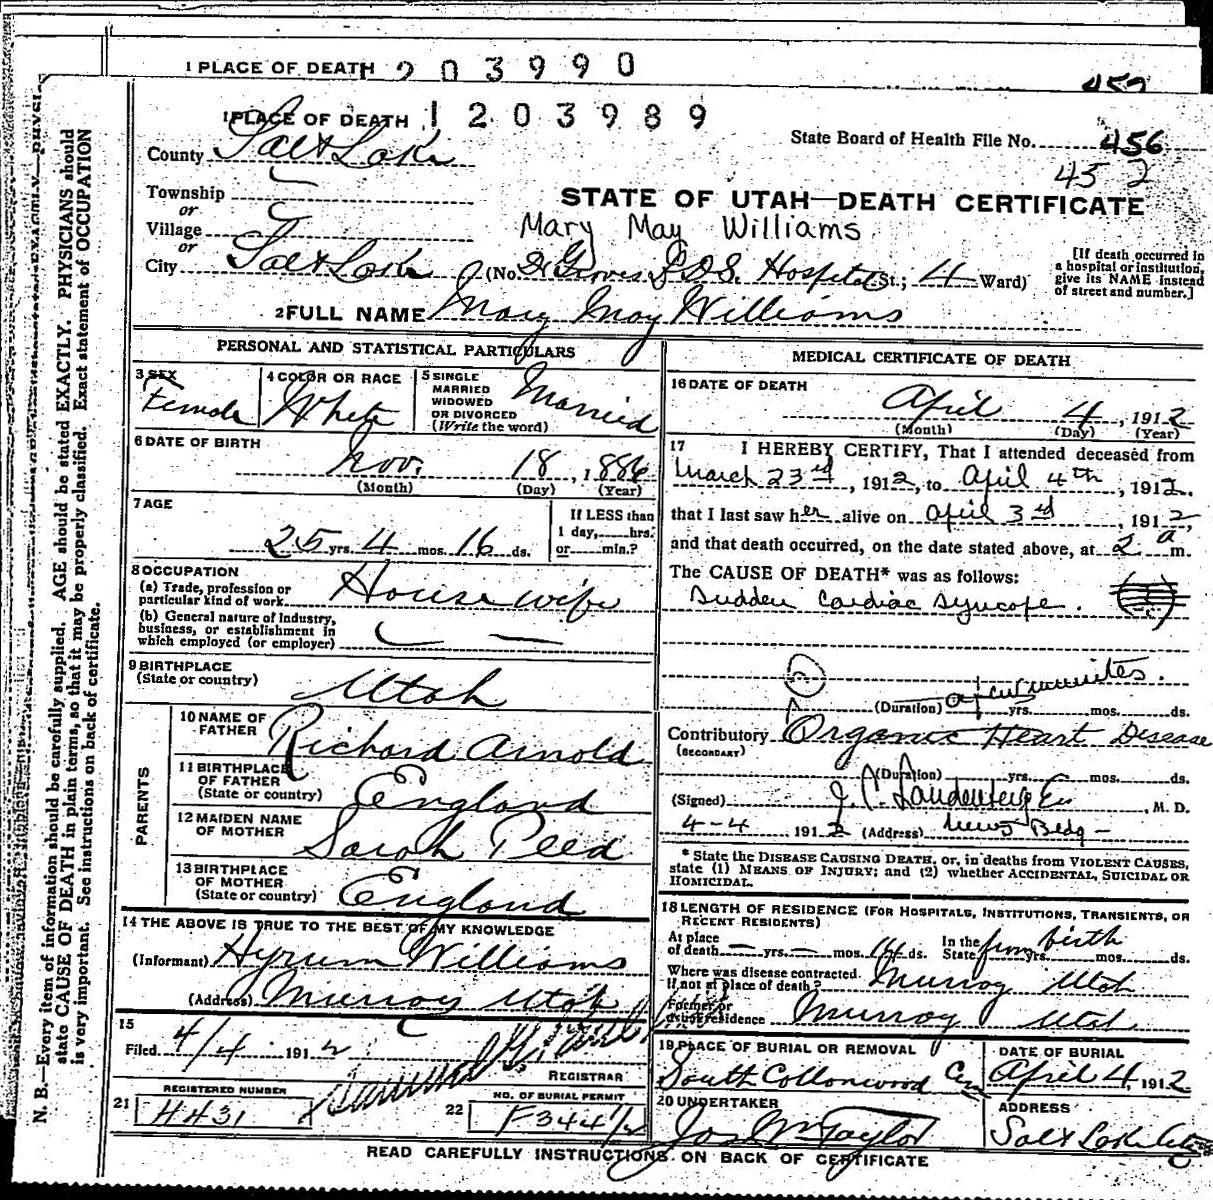 1 PLACE OF DEATH 203990
452
1 PLACE OF DEATH 1203989
State Board of Health File No. 456
452
County Salt Lake
Township
or
Village
or
City Salt Lake (No. Dr Groves L.D.S. Hospital St.; 4 Ward)
STATE OF UTAH—DEATH CERTIFICATE
Mary May Williams
[If death occurred in a hospital or institution, give its NAME instead of street and number.]
2 FULL NAME Mary May Williams
PERSONAL AND STATISTICAL PARTICULARS
3 SEX Female
4 COLOR OR RACE White
5 SINGLE
MARRIED
WIDOWED
OR DIVORCED
(Write the word)
Married
6 DATE OF BIRTH
Nov. 18, 1886
(Month) (Day) (Year)
7 AGE
25 yrs. 4 mos. 16 ds.
If LESS than
1 day, hrs.
or min.?
8 OCCUPATION
(a) Trade, profession or
particular kind of work House wife
(b) General nature of Industry,
business, or establishment in
which employed (or employer)
9 BIRTHPLACE
(State or country) Utah
PARENTS
10 NAME OF
FATHER Richard Arnold
11 BIRTHPLACE
OF FATHER
(State or country) England
12 MAIDEN NAME
OF MOTHER Sarah Peed
13 BIRTHPLACE
OF MOTHER
(State or country) England
14 THE ABOVE IS TRUE TO THE BEST OF MY KNOWLEDGE
(Informant) Hyrum Williams
(Address) Murray Utah
15
Filed 4/4 1912
REGISTRAR
REGISTERED NUMBER
21 4431
NO. OF BURIAL PERMIT
22 F344½
MEDICAL CERTIFICATE OF DEATH
16 DATE OF DEATH
April 4, 1912
(Month) (Day) (Year)
17 I HEREBY CERTIFY, That I attended deceased from
March 23rd, 1912, to April 4th, 1912.
that I last saw her alive on April 3rd, 1912,
and that death occurred, on the date stated above, at 2 a m.
The CAUSE OF DEATH* was as follows:
Sudden cardiac syncope.
(Duration) a few minutes. yrs. mos. ds.
Contributory Organic Heart Disease
(SECONDARY)
(Duration) yrs. mos. ds.
(Signed) J.C. Landenberger, M. D.
4-4 1912 (Address) News Bldg -
* State the DISEASE CAUSING DEATH, or, in deaths from VIOLENT CAUSES,
state (1) MEANS OF INJURY; and (2) whether ACCIDENTAL, SUICIDAL OR
HOMICIDAL.
18 LENGTH OF RESIDENCE (FOR HOSPITALS, INSTITUTIONS, TRANSIENTS, OR
RECENT RESIDENTS)
At place
of death — yrs. — mos. 14 ds. In the
State from birth yrs. mos. ds.
Where was disease contracted.
If not at place of death? Murray Utah
Former or
usual residence Murray Utah
19 PLACE OF BURIAL OR REMOVAL
South Cottonwood Cem
DATE OF BURIAL
April 4, 1912
20 UNDERTAKER
Jos Wm Taylor
ADDRESS
Salt Lake City
READ CAREFULLY INSTRUCTIONS ON BACK OF CERTIFICATE
N. B.—Every item of information should be carefully supplied. AGE should be stated EXACTLY. PHYSICIANS should
state CAUSE OF DEATH in plain terms, so that it may be properly classified. Exact statement of OCCUPATION
is very important. See instructions on back of certificate.